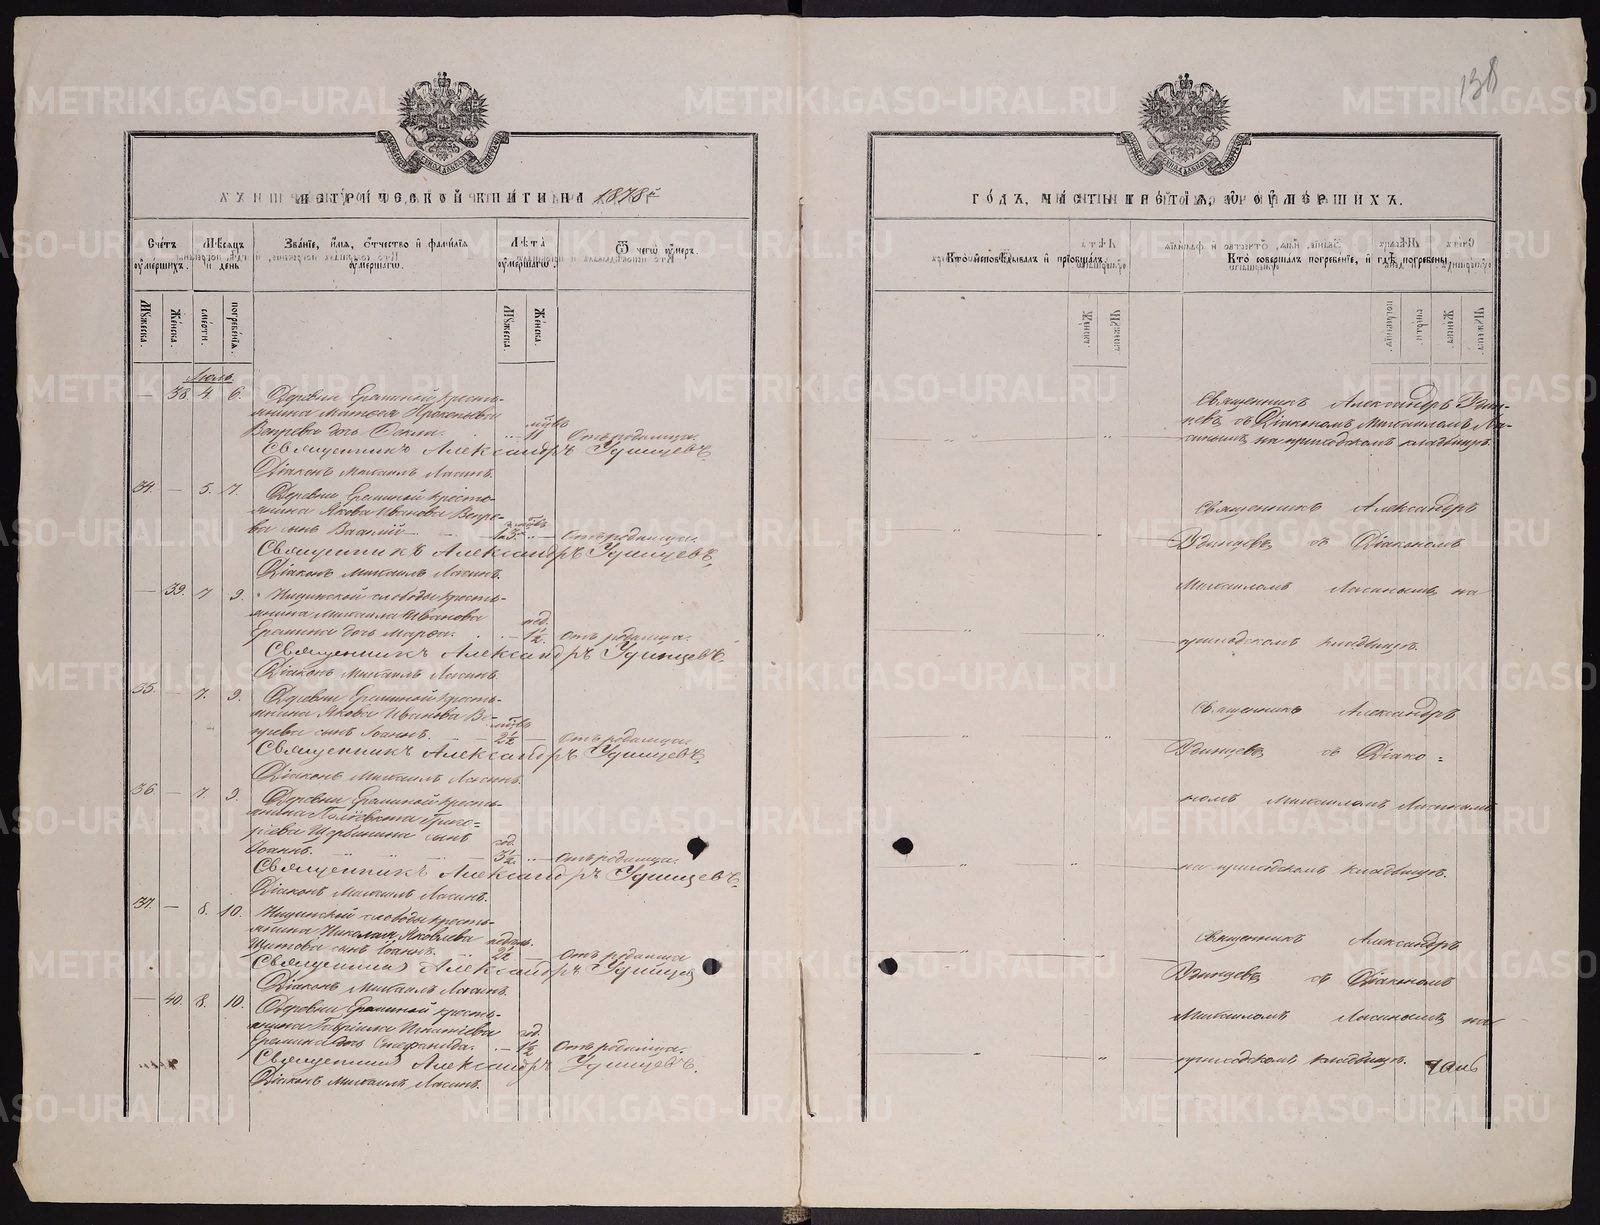 138
МЕТРИЧЕСКОЙ КНИГИ НА 1878й
Счетъ оумершихъ.
Мѣсяцъ и день
Званіе, имя, отчество и фамилія оумершагѡ.
Лѣта оумершагѡ.
Ѿ чегѡ оумеръ.
Мужеска.
Женска.
смерти.
погребенія.
Мужеска.
Женска.
Іюль
— 38. 4. 6. Деревни Ереминой кресть-
янина Матвея Прокопьева
Вепрева дочь Фекла.
11 Отъ родимца.
Священникъ Александръ Удинцевъ,
Діаконъ Михаилъ Ласинъ.
34. — 5. 7. Деревни Ереминой кресть-
янина Якова Иванова Вепре-
ва сынъ Василій
Отъ родимца.
Священникъ Александръ Удинцевъ,
Діаконъ Михаилъ Ласинъ.
— 39. 7 9. Ницинской слободы кресть-
янина Михаила Иванова
Еремина дочь Марѳа.
1½. Отъ родимца.
Священникъ Александръ Удинцевъ.
Діаконъ Михаилъ Ласинъ.
35. — 7. 9. Деревни Ереминой кресть-
янина Якова Иванова Ве-
прева сынъ Іоаннъ.
2½ Отъ родимца.
Священникъ Александръ Удинцевъ,
Діаконъ Михаилъ Ласинъ.
36 — 7. 9. Деревни Ереминой кресть-
янина Григо-
ріева Щербинина сынъ
Іоаннъ.
год.
3½ Отъ родимца.
Священникъ Александръ Удинцевъ.
Діаконъ Михаилъ Ласинъ.
37. — 8. 10. Ницинской слободы кресть-
янина Николая Яковлева
сынъ Іоаннъ.
недѣль.
2½ Отъ родимца
Священникъ Александръ Удинцев
Діаконъ Михаилъ Ласинъ.
— 40. 8. 10. Деревни Ереминой кресть-
янина Гавріила Игнатіева
Еремина дочь Стефанида.
год.
1½ Отъ родимца.
Священникъ Александръ Удинцевъ.
Діаконъ Михаилъ Ласинъ.
ГОДЪ, ЧАСТЬ ТРЕТІЯ, Ѡ ОУМЕРШИХЪ.
Кто исповѣдывалъ и пріобщалъ.
Кто совершалъ погребеніе, и гдѣ погребены.
Священникъ Александръ Удин-
цевъ съ Діакономъ Михаиломъ Ла-
синымъ на приходскомъ кладбищѣ.
Священникъ Александръ
Удинцевъ съ Діакономъ
Михаиломъ Ласинымъ на
приходскомъ кладбищѣ.
Священникъ Александръ
Удинцевъ съ Діако=
номъ Михаиломъ Ласинымъ
на приходскомъ кладбищѣ.
Священникъ Александръ
Удинцевъ съ Діакономъ
Михаиломъ Ласинымъ на
приходскомъ кладбищѣ.
METRIKI.GASO-URAL.RU